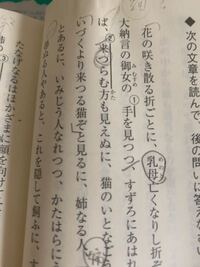 ◆次の文章を読んで、後の問いに答
花の咲き散る折ごとに、乳母亡くなりし折
大納言の御女の①手を見つつ、すずろにあはれ
ば、来つらむ方も見えぬに、猫のいとな
いづくより来つる猫ぞと見るに、姉なる人
とあるに、いみじう人なれつつ、かたはらに
を隠して飼ふに、す
たなげなるはほかざまに顔を向け